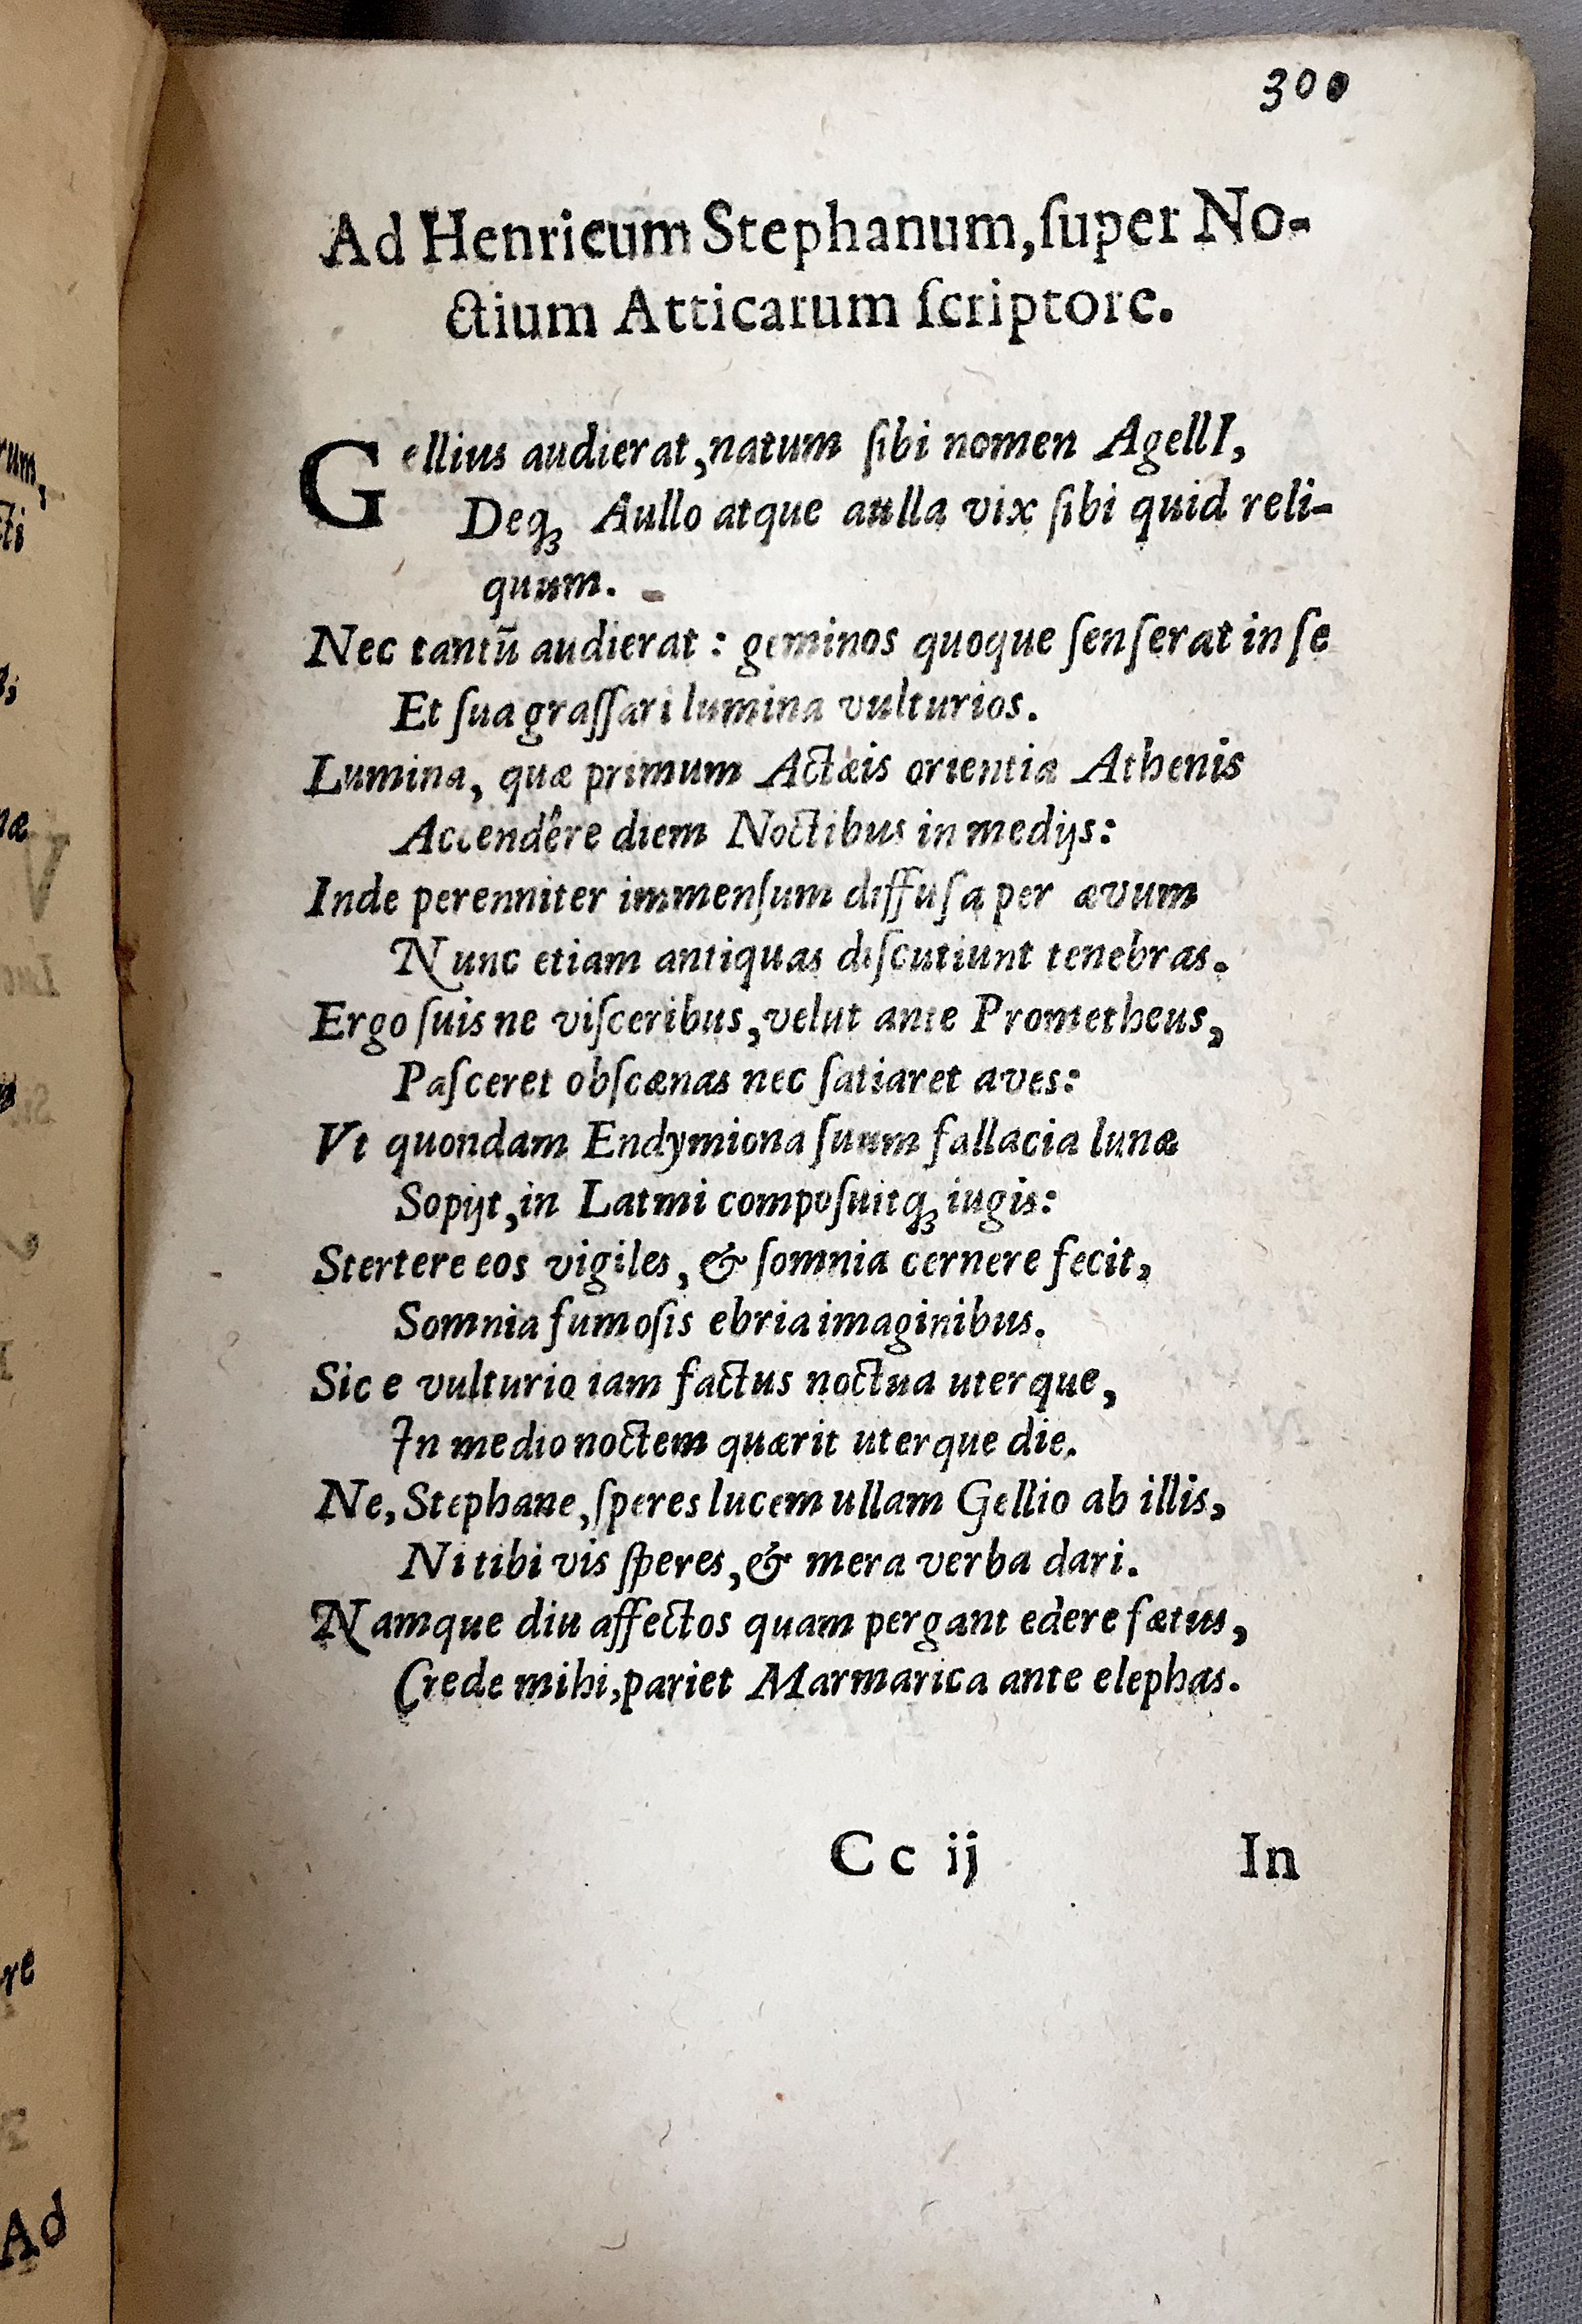 300
Ad Henricum Stephanum, ſuper No-
ctium Atticarum ſcriptore.
Gellius audierat, natum ſibi nomen AgellI,
Deqꝫ Aullo atque aulla vix ſibi quid reli-
quum.
Nec tantū audierat : geminos quoque ſenſerat in ſe
Et ſua graſſari lumina vulturios.
Lumina, quæ primum Actæis orientia Athenis
Accendêre diem Noctibus in medijs:
Inde perenniter immenſum diffuſa per ævum
Nunc etiam antiquas diſcutiunt tenebras.
Ergo ſuis ne viſceribus, velut ante Prometheus,
Paſceret obſcænas nec ſatiaret aves:
Vt quondam Endymiona ſuum fallacia lunæ
Sopijt, in Latmi compoſuitqꝫ iugis:
Stertere eos vigiles, & ſomnia cernere fecit,
Somnia fumoſis ebria imaginibus.
Sic e vulturio iam factus noctua uterque,
In medio noctem quærit uterque die.
Ne, Stephane, ſperes lucem ullam Gellio ab illis,
Ni tibi vis ſperes, & mera verba dari.
Namque diu affectos quam pergant edere fætus,
Crede mihi, pariet Marmarica ante elephas.
Cc ij
In
Ad